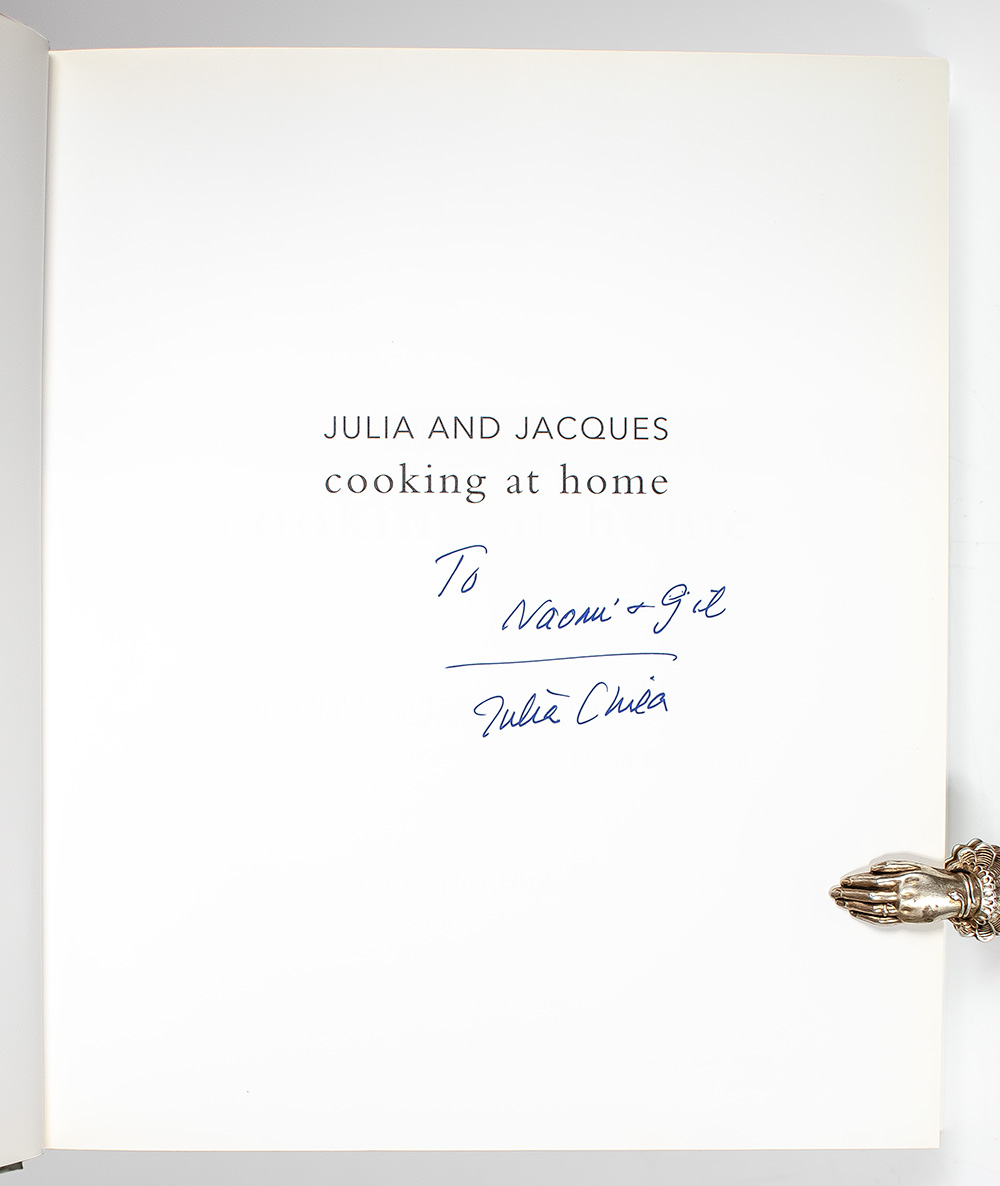 JULIA AND JACQUES
cooking at home
To
Naomi + Gil
Julia Child